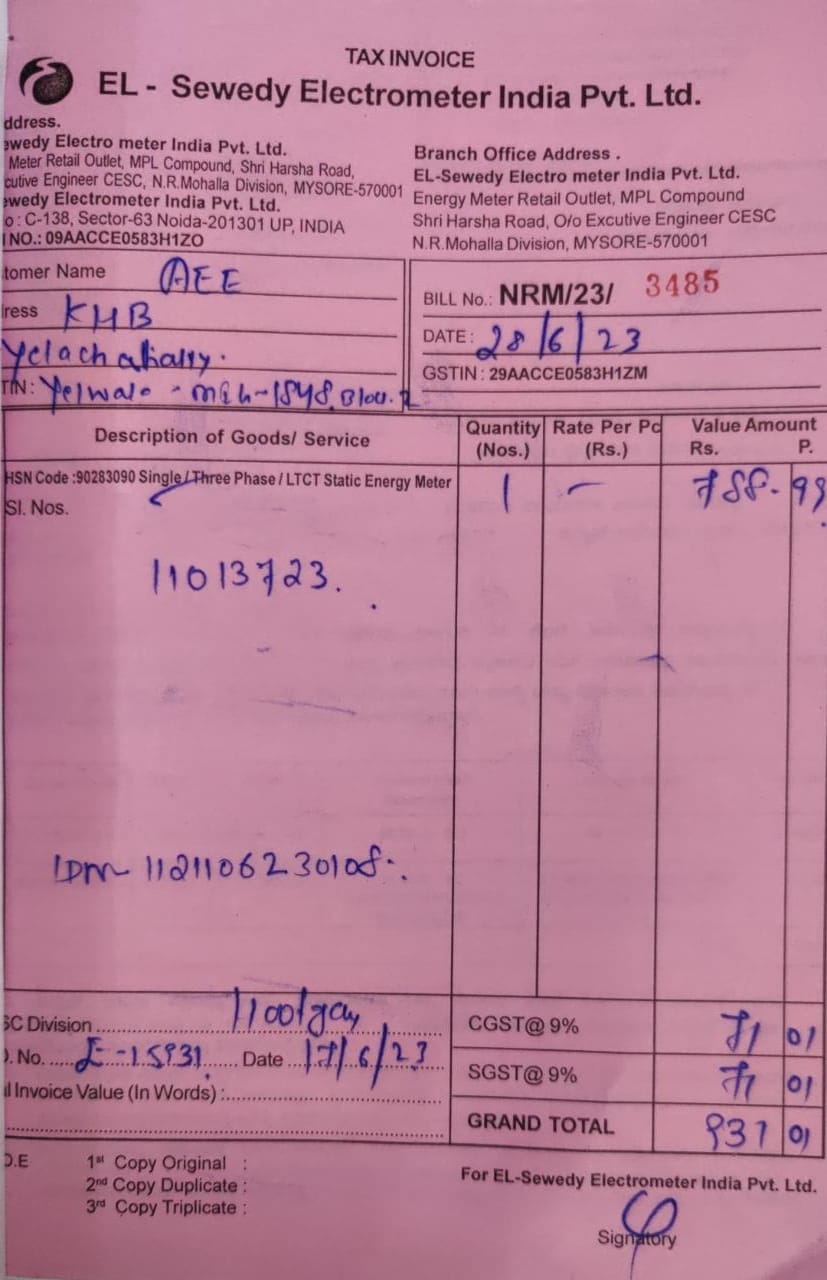 TAX INVOICE
EL - Sewedy Electrometer India Pvt. Ltd.
ddress.
ewedy Electro meter India Pvt. Ltd.
Meter Retail Outlet, MPL Compound, Shri Harsha Road,
cutive Engineer CESC, N.R.Mohalla Division, MYSORE-570001
ewedy Electrometer India Pvt. Ltd.
o : C-138, Sector-63 Noida-201301 UP, INDIA
NO.: 09AACCE0583H1ZO
Branch Office Address .
EL-Sewedy Electro meter India Pvt. Ltd.
Energy Meter Retail Outlet, MPL Compound
Shri Harsha Road, O/o Excutive Engineer CESC
N.R.Mohalla Division, MYSORE-570001
tomer Name AEE
ress KHB
TIN:
BILL No.: NRM/23/ 3485
DATE : 28/6/23
GSTIN : 29AACCE0583H1ZM
Description of Goods/ Service Quantity (Nos.) Rate Per Pc (Rs.) Value Amount Rs. P.
HSN Code :90283090 Single / Three Phase / LTCT Static Energy Meter 1 - 788.99
Sl. Nos.
11013723.
SC Division
. No. Date 17/6/23
l Invoice Value (In Words) :
CGST@ 9% 71 01
SGST@ 9% 71 01
GRAND TOTAL 931 01
O.E 1st Copy Original :
2nd Copy Duplicate :
3rd Copy Triplicate :
For EL-Sewedy Electrometer India Pvt. Ltd.
Signatory